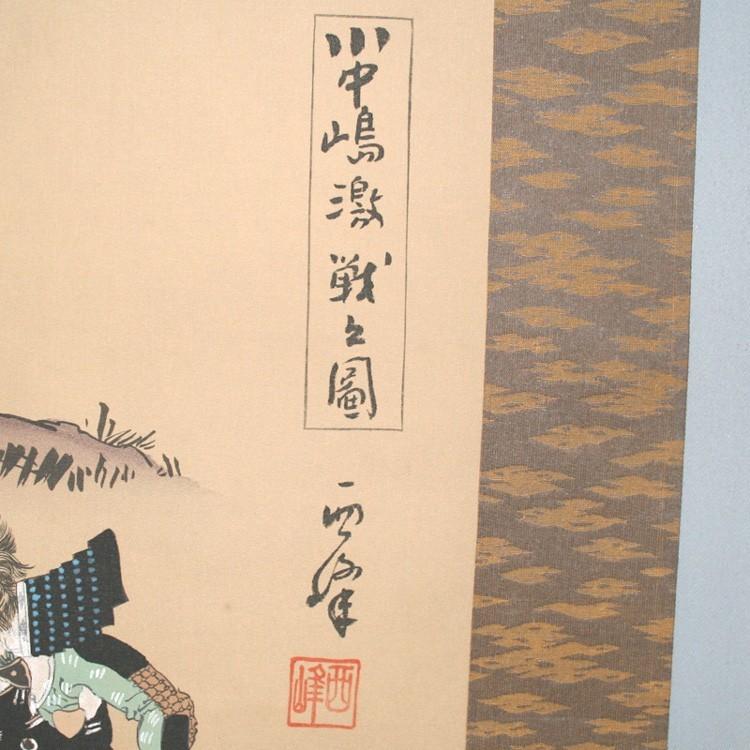 川中嶋激戦之圖
西峰
西峰